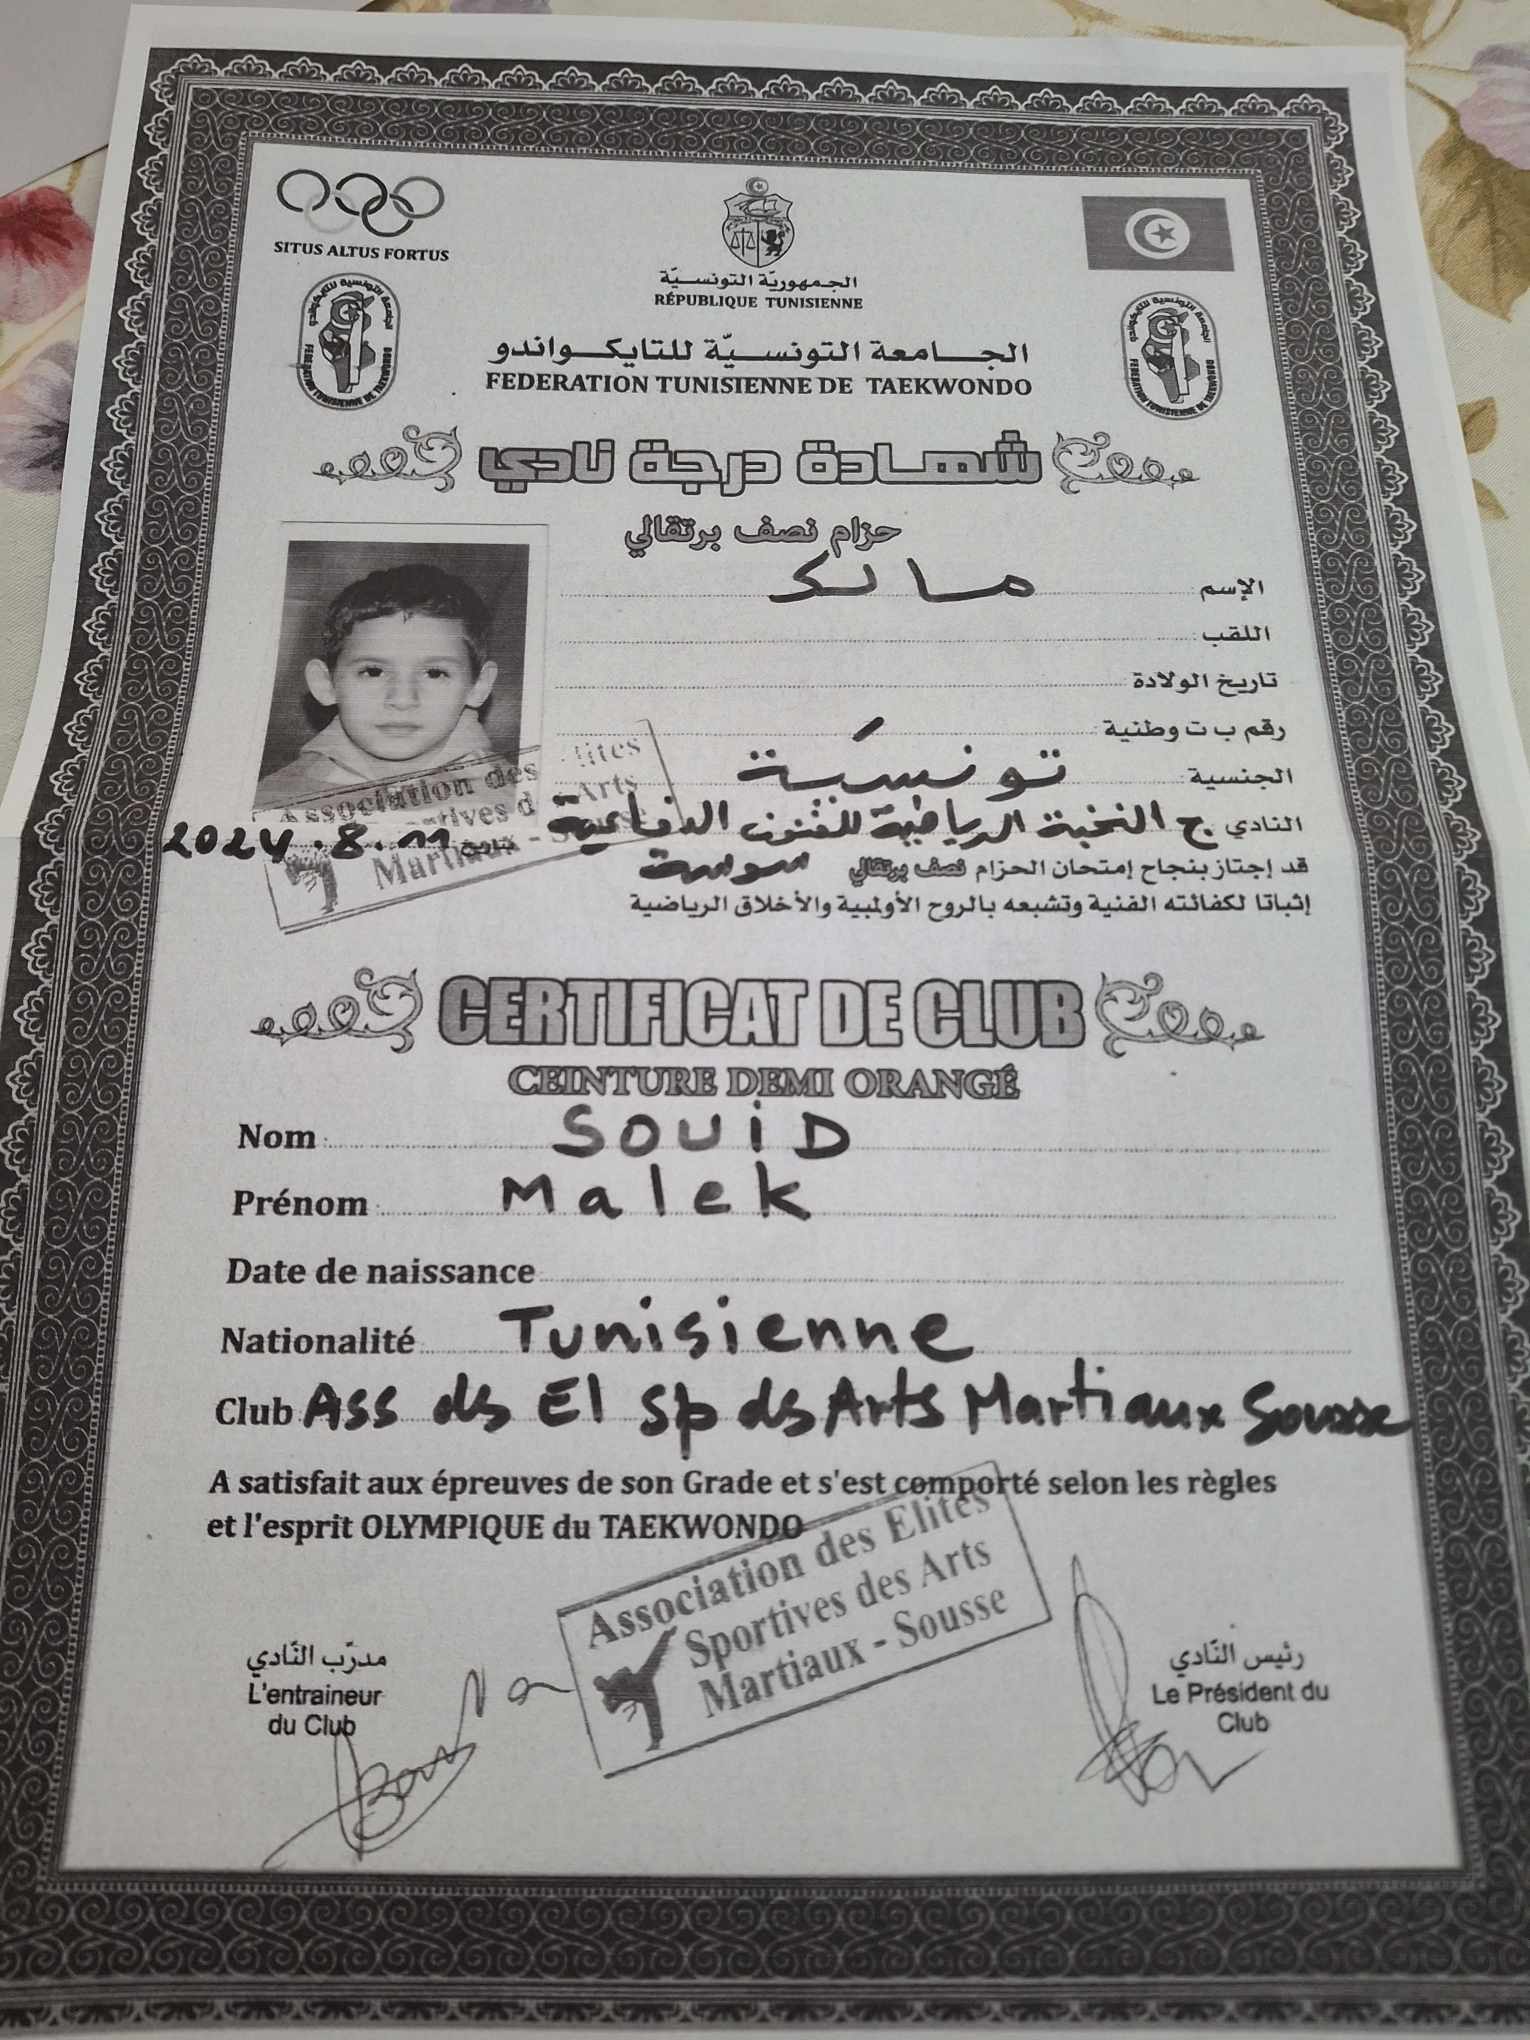 SITUS ALTUS FORTUS
الجمهوريّة التونسيّة
RÉPUBLIQUE TUNISIENNE
الجامعة التونسيّة للتايكواندو
FEDERATION TUNISIENNE DE TAEKWONDO
الجامعة التونسية للتايكواندو
FEDERATION TUNISIENNE DE TAEKWONDO
الجامعة التونسية للتايكواندو
FEDERATION TUNISIENNE DE TAEKWONDO
شهادة درجة نادي
حزام نصف برتقالي
الإسم: مالك
اللقب:
تاريخ الولادة
رقم ب ت وطنية:
الجنسية: تونسية
النادي ج النخبة الرياضية للفنون الدفاعية
سوسة
بتاريخ 2024.8.11
قد إجتاز بنجاح إمتحان الحزام نصف برتقالي
إثباتا لكفائته الفنية وتشبعه بالروح الأولمبية والأخلاق الرياضية
Association des Elites
Sportives des Arts
Martiaux - Sousse
CERTIFICAT DE CLUB
CEINTURE DEMI ORANGÉ
Nom: SOUiD
Prénom: Malek
Date de naissance
Nationalité Tunisienne
Club Ass ds El sp ds Arts Martiaux Sousse
A satisfait aux épreuves de son Grade et s'est comporté selon les règles
et l'esprit OLYMPIQUE du TAEKWONDO
Association des Elites
Sportives des Arts
Martiaux - Sousse
مدرّب النّادي
L'entraineur
du Club
رئيس النّادي
Le Président du
Club